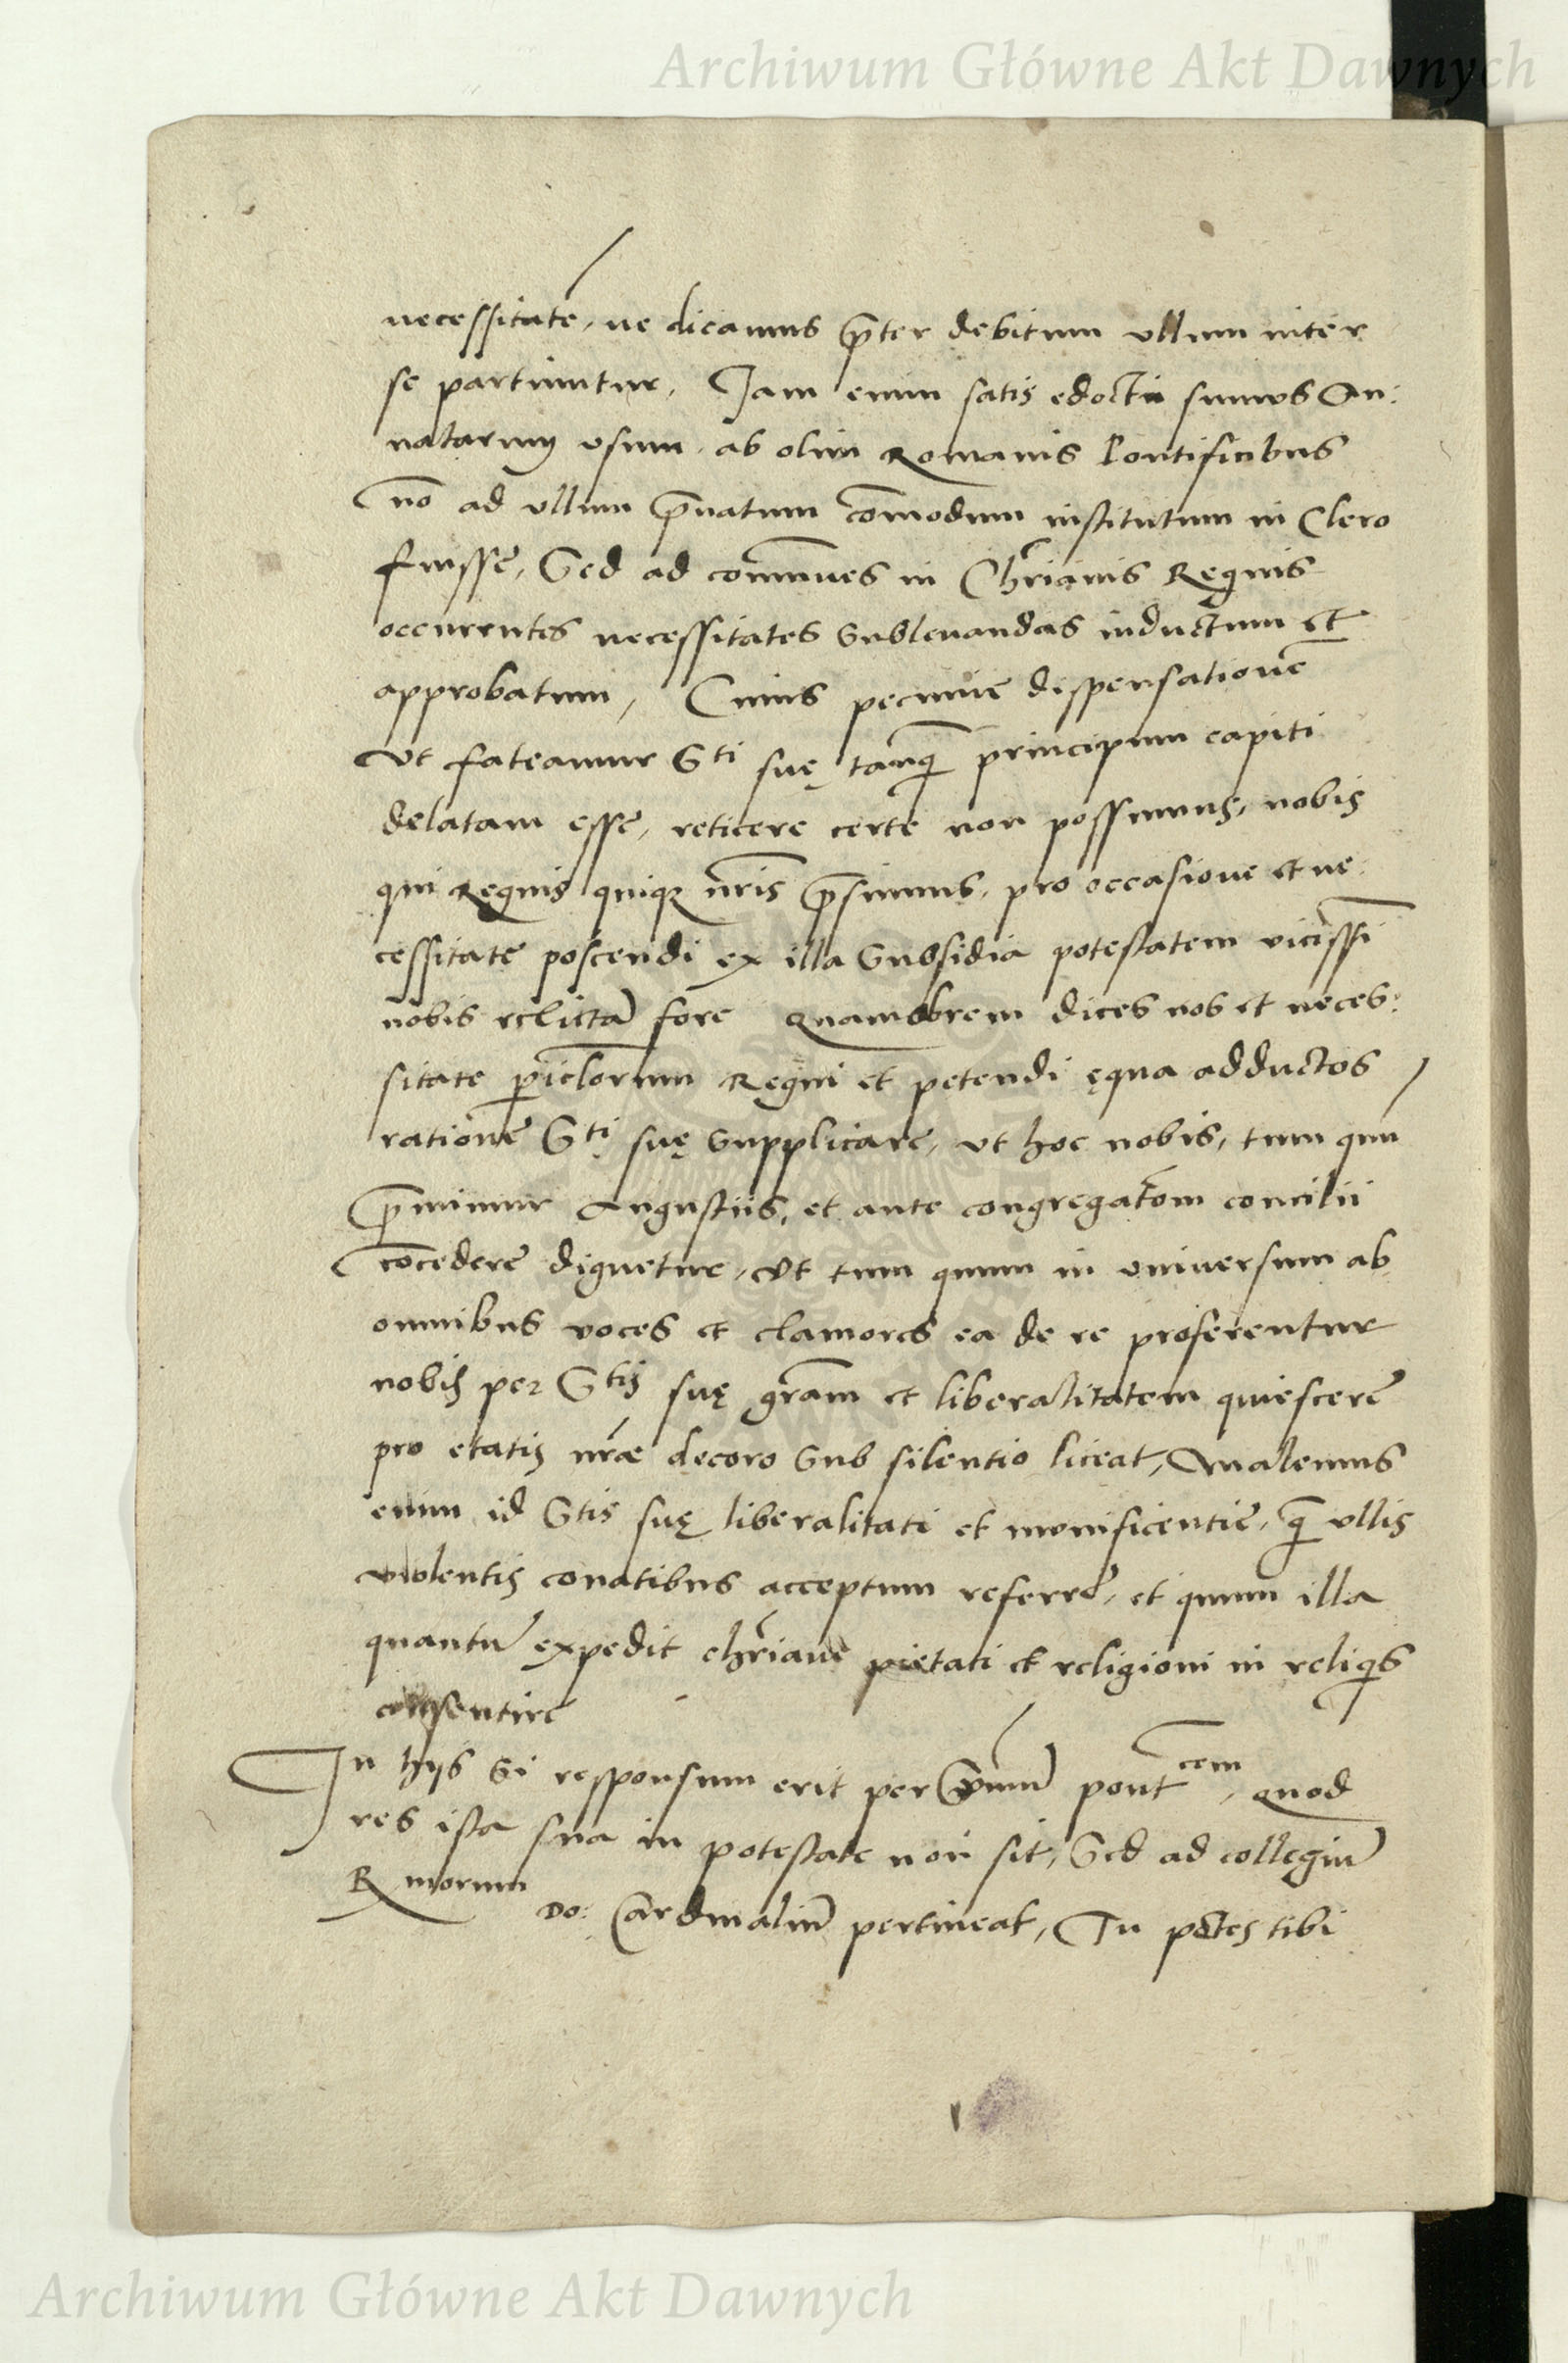 Archiwum Główne Akt Dawnych
necessitatē, ne dicamus p̄ter debitum ullum inter
se partiuntur, Jam enim satis edocti sumus An:
natarum usum, ab olim Romanis Pontificibus
nō ad ullum p̄vatum cōmodum institutum in Clero
fuisse, Sed ad communes in Chr̄ianis Regnis
occurrentes necessitates sublevandas inductum et
approbatum, Cuius pecunie dispensationē
Ut fateamur Sti suę tanq̄ principum capiti
delatam esse, reticere certe non possumus, nobis
qui Regnis quique nr̄is p̄sumus, pro occasione et ne
cessitate poscendi ex illa Subsidia potestatem vicissī
nobis relictā fore Quamobrem dices nos et neces:
sitate pericl̄orum Regni et petendi ęqua adductos
ratione Sti suę supplicare, ut hoc nobis, tum quū
p̄mimur Angustiis, et ante congregatōm concilii
cōcedere dignetur, Ut tum quum in universum ab
omnibus voces et clamores ea de re proferentur
nobis per Stis suę gr̄am et liberalitatem quiescere
pro etatis nr̄æ decoro sub silentio liceat, Malemus
enim id Stis suę liberalitati et munificentie, q̄ ullis
violentis conatibus acceptum referre, et quum illa
quantū expedit chr̄iane pietati et religioni in reliquis
consentire
In hijs si responsum erit per Sūmū pontcem, quod
res ista sua in potestate non sit, Sed ad collegiū
Rmorum Do: Cardinaliū pertineat, Tu potes tibi
Archiwum Główne Akt Dawnych